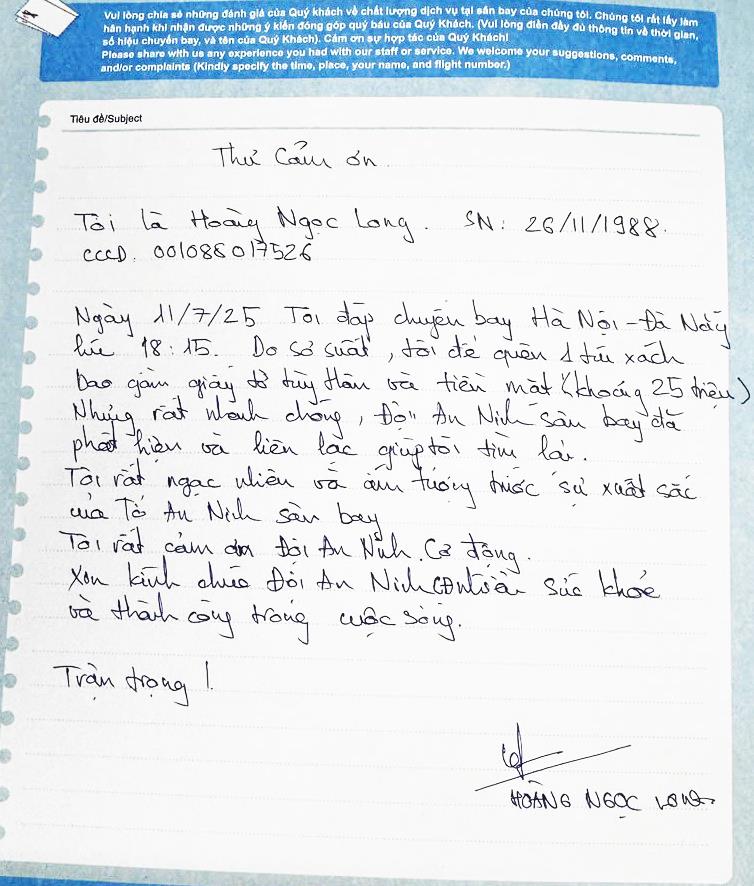 Vui lòng chia sẻ những đánh giá của Quý khách về chất lượng dịch vụ tại sân bay của chúng tôi. Chúng tôi rất lấy làm
hân hạnh khi nhận được những ý kiến đóng góp quý báu của Quý Khách. (Vui lòng điền đầy đủ thông tin về thời gian,
số hiệu chuyến bay, và tên của Quý Khách). Cảm ơn sự hợp tác của Quý Khách!
Please share with us any experience you had with our staff or service. We welcome your suggestions, comments,
and/or complaints (Kindly specify the time, place, your name, and flight number.)
Tiêu đề/Subject
Thư Cảm ơn
Tôi là Hoàng Ngọc Long. SN: 26/11/1988.
CCCD. 001088017526
Ngày 11/7/25 Tôi đáp chuyến bay Hà Nội - Đà Nẵng
lúc 18:15. Do sơ suất, tôi để quên 1 túi xách
bao gồm giấy tờ tùy thân và tiền mặt (khoảng 25 triệu)
Nhưng rất nhanh chóng, Đội An Ninh sân bay đã
phát hiện và liên lạc giúp tôi tìm lại.
Tôi rất ngạc nhiên và ấn tượng trước sự xuất sắc
của Tổ An Ninh sân bay
Tôi rất cảm ơn Đội An Ninh Cơ động.
Xin kính chúc Đội An Ninh CĐ sức khỏe
và thành công trong cuộc sống.
Trân trọng!
HOÀNG NGỌC LONG